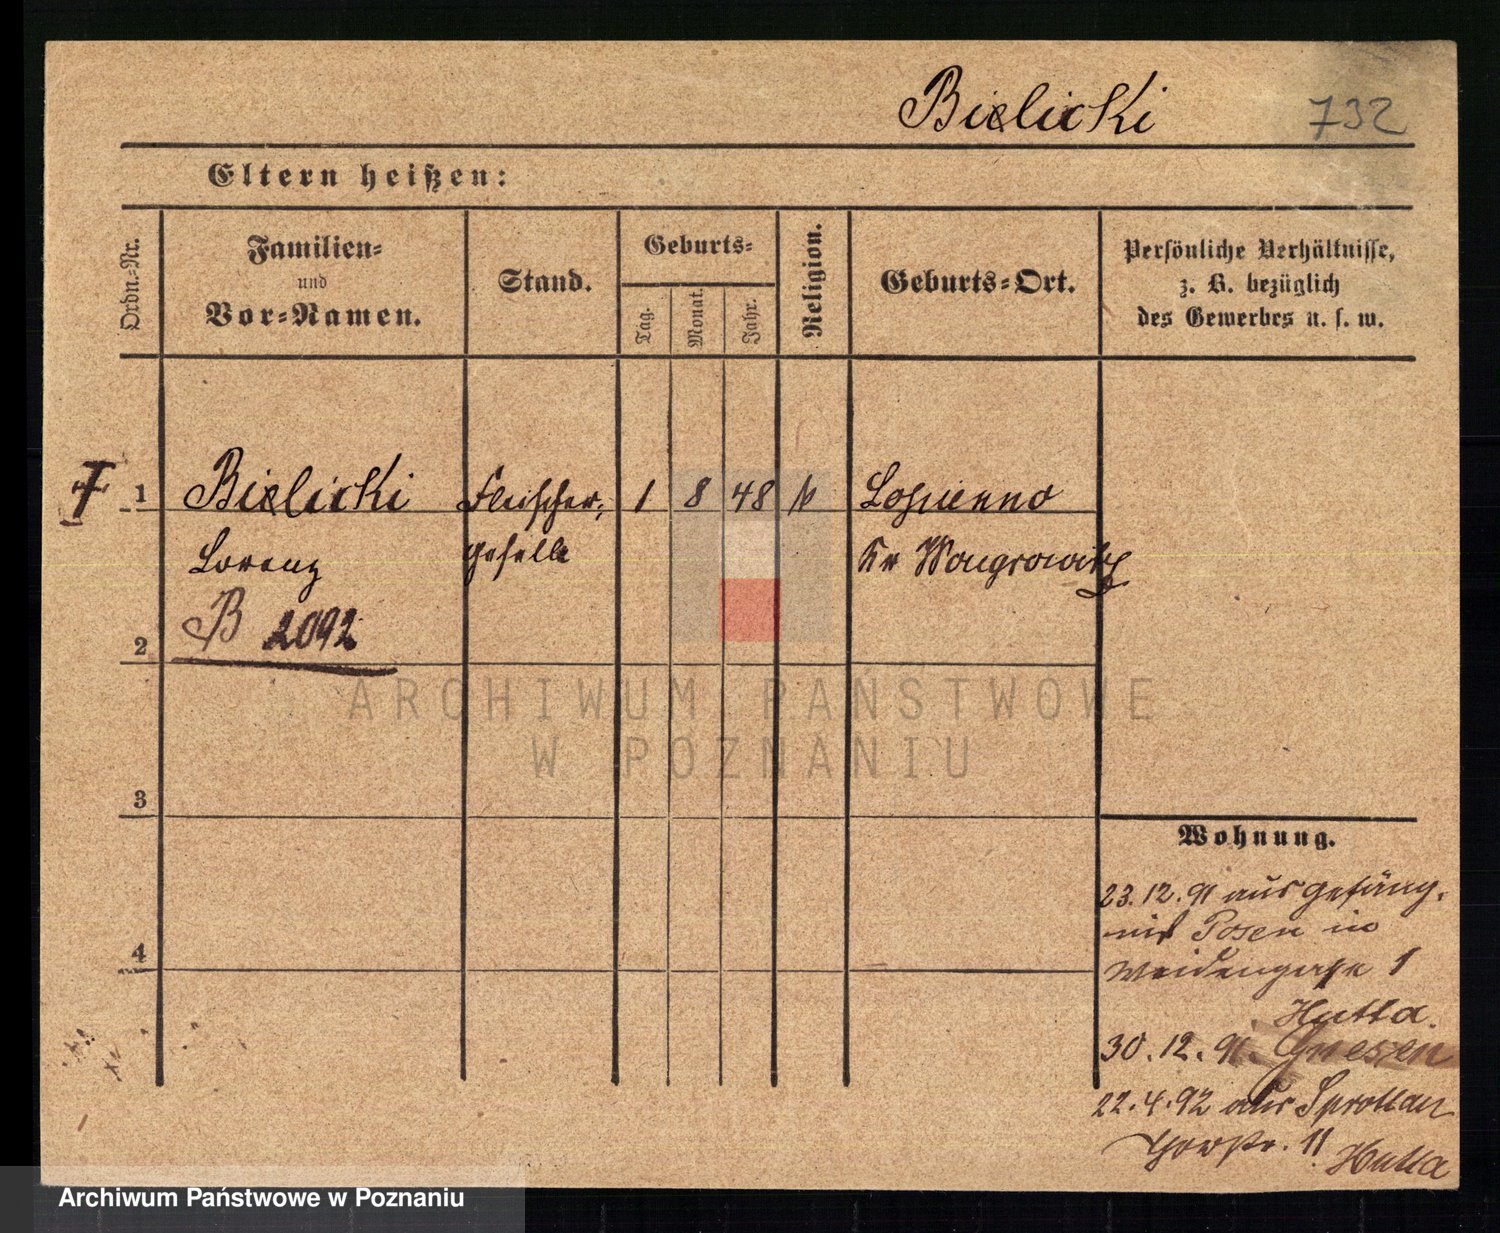 Bielicki
732
Eltern heißen:
Ordn.-Nr.
Familien-
und
Vor-Namen.
Stand.
Geburts-
Tag.
Monat.
Jahr.
Religion.
Geburts-Ort.
Persönliche Verhältnisse,
z. B. bezüglich
des Gewerbes u. s. w.
1 Bielicki Fleischer, 1 8 48 k Lopienno
Lorenz geselle Kr Wongrowitz
B 2092
2
3
4
ARCHIWUM PAŃSTWOWE
W POZNANIU
Wohnung.
23.12.91 aus gefäng.
niß Posen in
Weidengasse 1
Hutta.
30.12.91. Gnesen
22.4.92 aus Sprottau
Thorstr. 11 Hutta
Archiwum Państwowe w Poznaniu